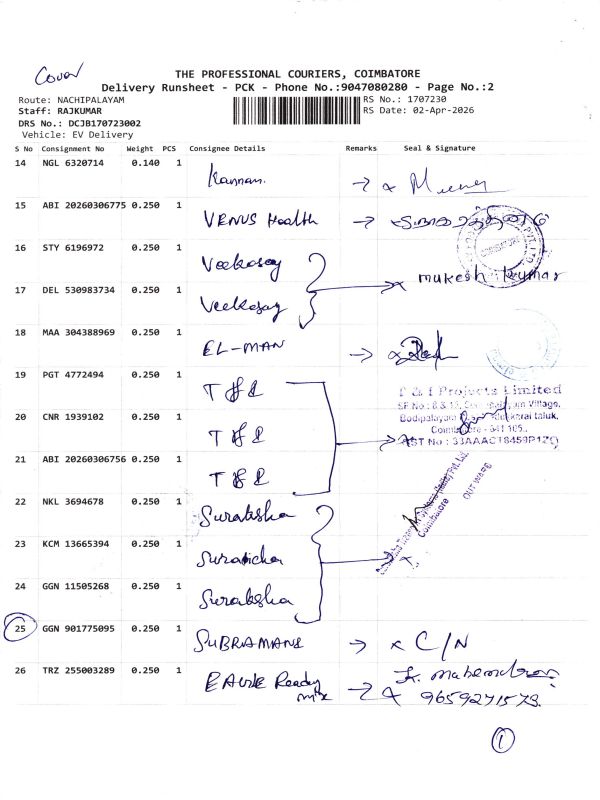 Cover
THE PROFESSIONAL COURIERS, COIMBATORE
Delivery Runsheet - PCK - Phone No.:9047080280 - Page No.:2
Route: NACHIPALAYAM
Staff: RAJKUMAR
DRS No.: DCJB170723002
Vehicle: EV Delivery
RS No.: 1707230
RS Date: 02-Apr-2026
S No Consignment No Weight PCS Consignee Details Remarks Seal & Signature
14 NGL 6320714 0.140 1 Kannan. →
15 ABI 20260306775 0.250 1 VENUS Health →
16 STY 6196972 0.250 1 Veekesay
17 DEL 530983734 0.250 1 Veekesay mukesh kumar
18 MAA 304388969 0.250 1 EL-MAN →
19 PGT 4772494 0.250 1 T & I
20 CNR 1939102 0.250 1 T & I
21 ABI 20260306756 0.250 1 T & I
Projects Limited
22 NKL 3694678 0.250 1 Suraksha
23 KCM 13665394 0.250 1
24 GGN 11505268 0.250 1 Suraksha
Coimbatore
OUTWARD
25 GGN 901775095 0.250 1 SUBRAMANI → x C/N
26 TRZ 255003289 0.250 1 Ready mix →
9659271573.
1